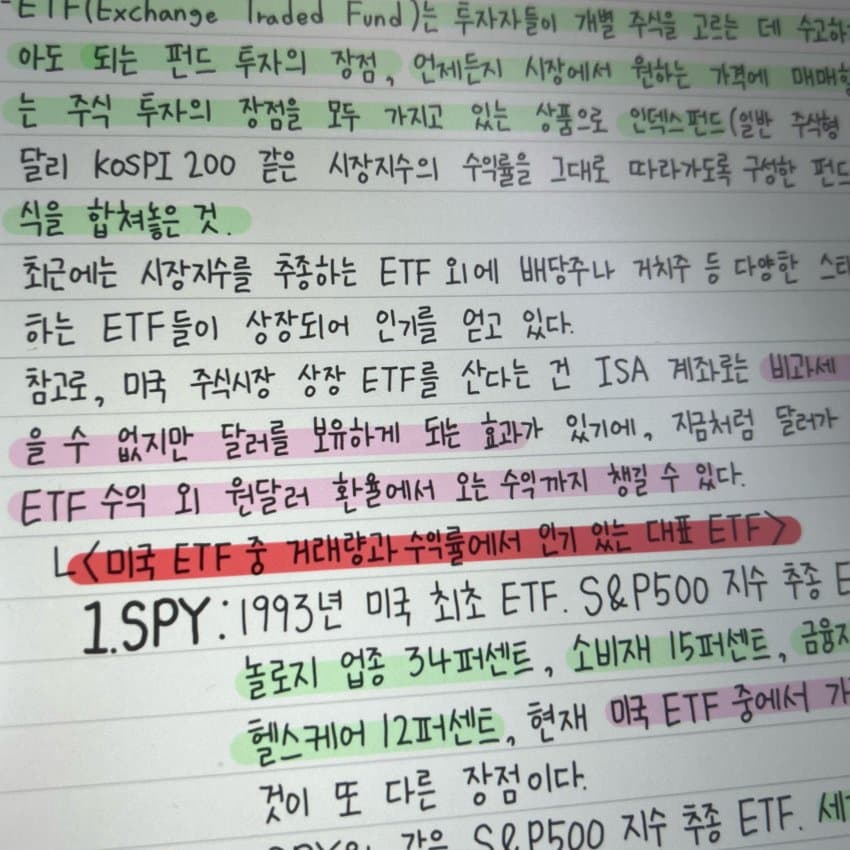 -ETF(Exchange Traded Fund)는 투자자들이 개별 주식을 고르는 데 수고하
아도 되는 펀드 투자의 장점, 언제든지 시장에서 원하는 가격에 매매할
는 주식 투자의 장점을 모두 가지고 있는 상품으로 인덱스펀드(일반 주식형
달리 KOSPI 200 같은 시장지수의 수익률을 그대로 따라가도록 구성한 펀드
식을 합쳐놓은 것.
최근에는 시장지수를 추종하는 ETF 외에 배당주나 거치주 등 다양한 스타
하는 ETF들이 상장되어 인기를 얻고 있다.
참고로, 미국 주식시장 상장 ETF를 산다는 건 ISA 계좌로는 비과세
을 수 없지만 달러를 보유하게 되는 효과가 있기에, 지금처럼 달러가
ETF 수익 외 원달러 환율에서 오는 수익까지 챙길 수 있다.
ㄴ<미국 ETF 중 거래량과 수익률에서 인기 있는 대표 ETF>
1.SPY: 1993년 미국 최초 ETF. S&P500 지수 추종 E
놀로지 업종 34퍼센트, 소비재 15퍼센트, 금융지
헬스케어 12퍼센트, 현재 미국 ETF 중에서 가
것이 또 다른 장점이다.
같은 S&P500 지수 추종 ETF. 세